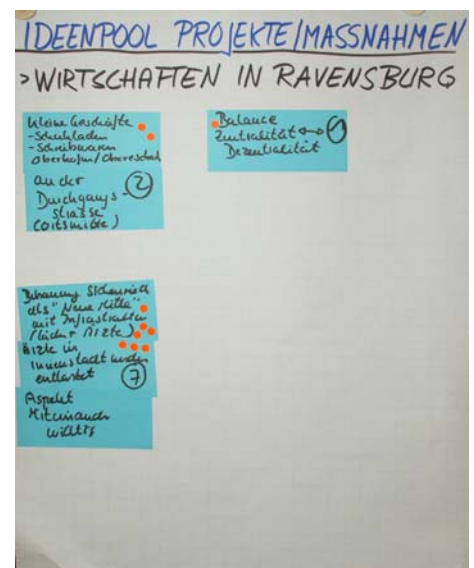 IDEENPOOL PROJEKTE/MASSNAHMEN
>WIRTSCHAFTEN IN RAVENSBURG
Kleine Geschäfte
-Schuhladen
-Schreibwaren
Oberhofen/Obereschach
an der
Durchgangs-
strasse
(Ortsmitte)
2
Balance
Zentralität ↔
Dezentralität
1
Bebauung
als "Neue Mitte"
mit Infrastruktur
(Läden Ärzte)
Ärzte in
Innenstadt werden
entlastet
7
Aspekt
Miteinander
wichtig